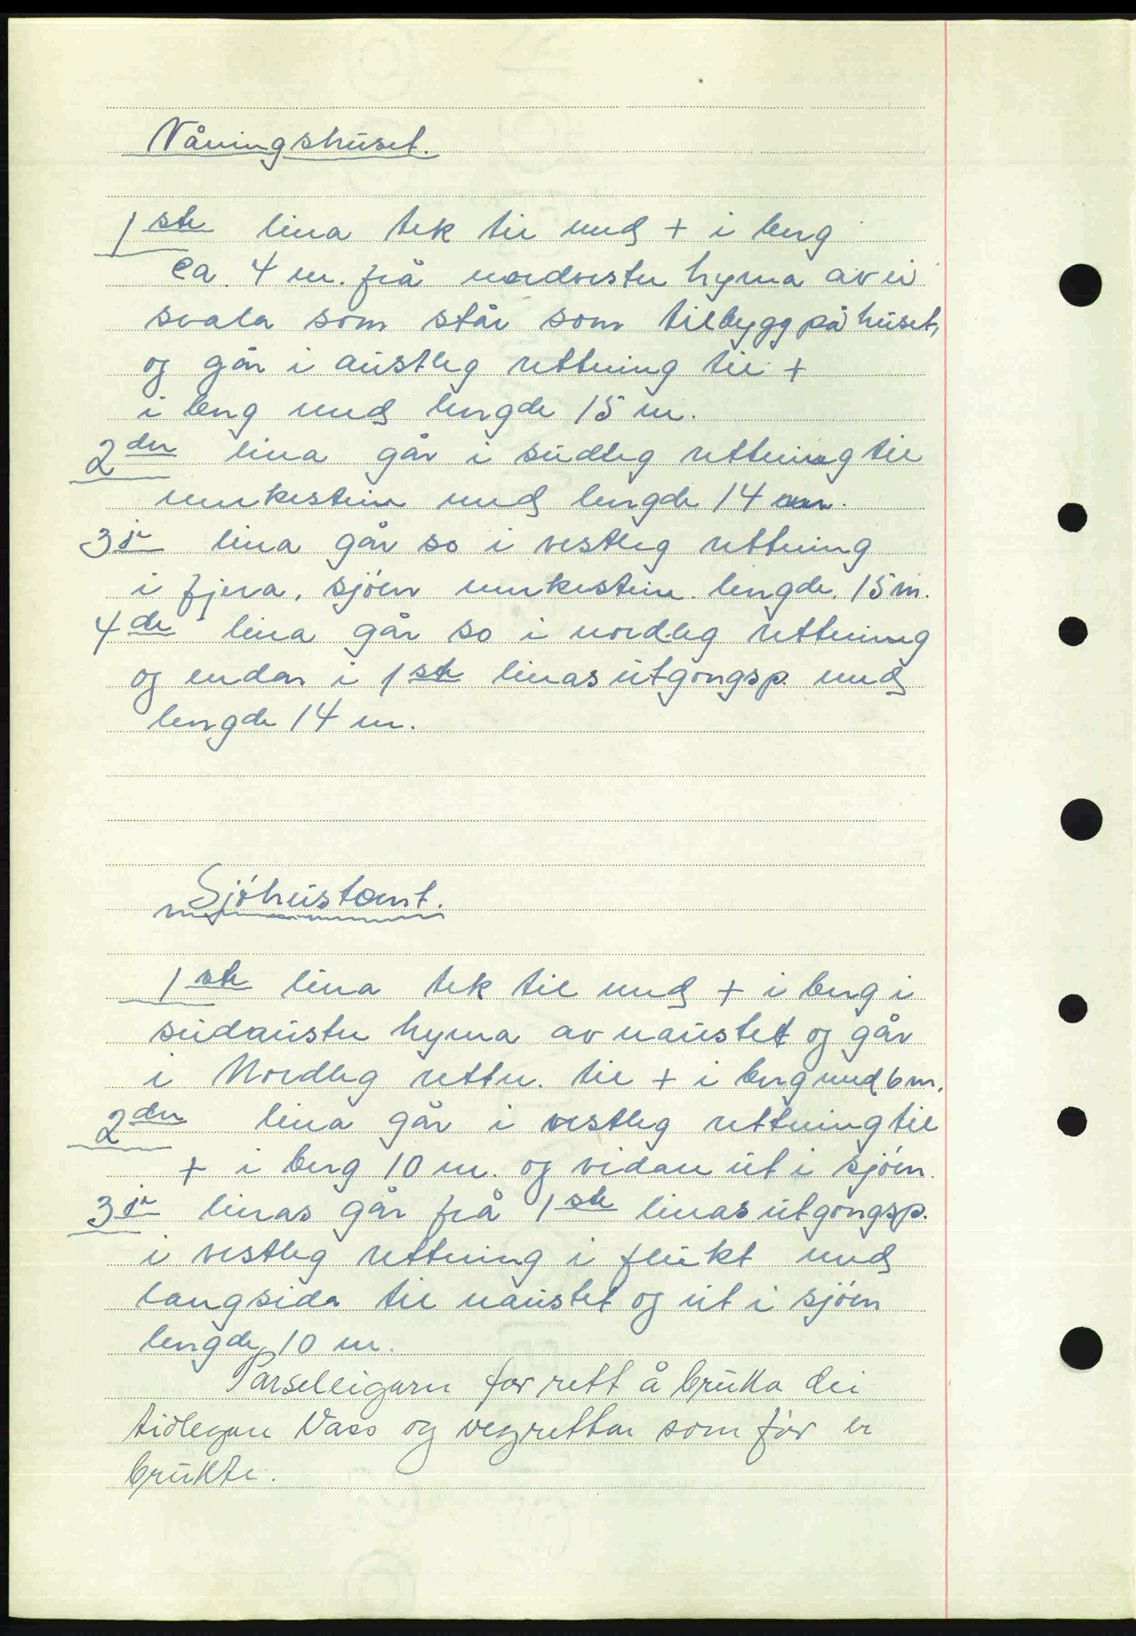 Våningshuset.
1ste lina tek til med + i berg
ca. 4 m. frå nordvestre hyrna av ei
svala som står som tilbygg på huset,
og går i austleg rettning til +
i berg med lengde 15 m.
2dre lina går i sudleg rettning til
merkestein med lengde 14 m.
3je lina går so i vestleg rettning
i fjera, sjøen merkestein. lengde 15 m.
4de lina går so i nordleg rettning
og endar i 1ste linas utgongsp. med
lengde 14 m.
Sjøhustomt.
1ste lina tek til med + i berg i
sudaustre hyrna av naustet og går
i Nordleg rettn. til + i berg med 6 m.
2dre lina går i vestleg rettning til
+ i berg 10 m. og vidare ut i sjøen.
3je linas går frå 1ste linas utgongsp.
i vestleg rettning i flukt med
langsida til naustet og ut i sjøen
lengde 10 m.
Parselleigarn får rett å brukka dei
tidlegare Vass og vegrettar som før er
brukte.